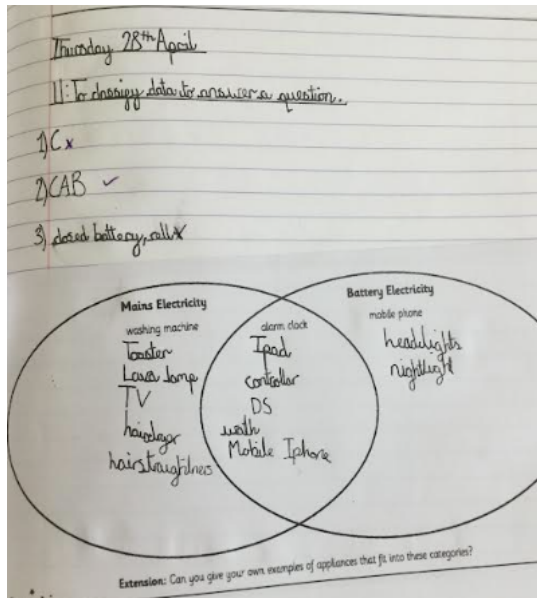 Thursday 28th April
LI: To classify data to answer a question.
1) C x
2) CAB ✓
3) closed battery, cell x
Mains Electricity
washing machine
Toaster
Lava lamp
TV
hairdryer
hairstraightners
alarm clock
Ipad
controller
DS
Mobile Iphone
Battery Electricity
mobile phone
headlights
nightlight
Extension: Can you give your own examples of appliances that fit into these categories?